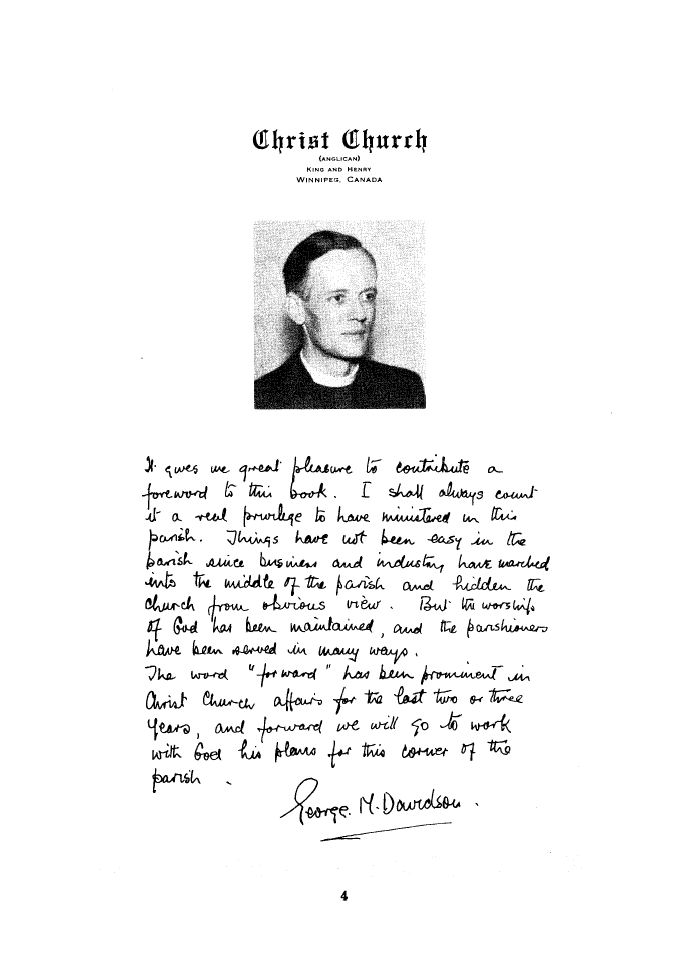 Christ Church
(ANGLICAN)
KING AND HENRY
WINNIPEG, CANADA
It gives me great pleasure to contribute a
foreword to this book. I shall always count
it a real privilege to have ministered in this
parish. Things have not been easy in the
parish since business and industry have marched
into the middle of the parish and hidden the
church from obvious view. But the worship
of God has been maintained, and the parishioners
have been served in many ways.
The word "forward" has been prominent in
Christ Church affairs for the last two or three
years, and forward we will go to work
with God his plans for this corner of the
parish.
George. M. Davidson.
4